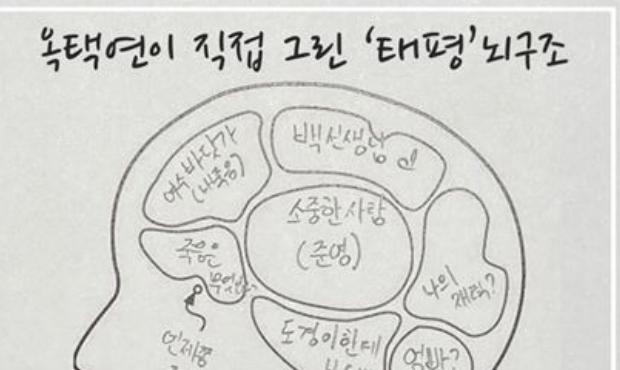 옥택연이 직접 그린 '태평' 뇌구조
여수 바닷가
(내죽음)
백선생님
소중한 사람
(준영)
죽음은
무엇인가?
나의
재력?
도경이한테
엄마?
언제쯤